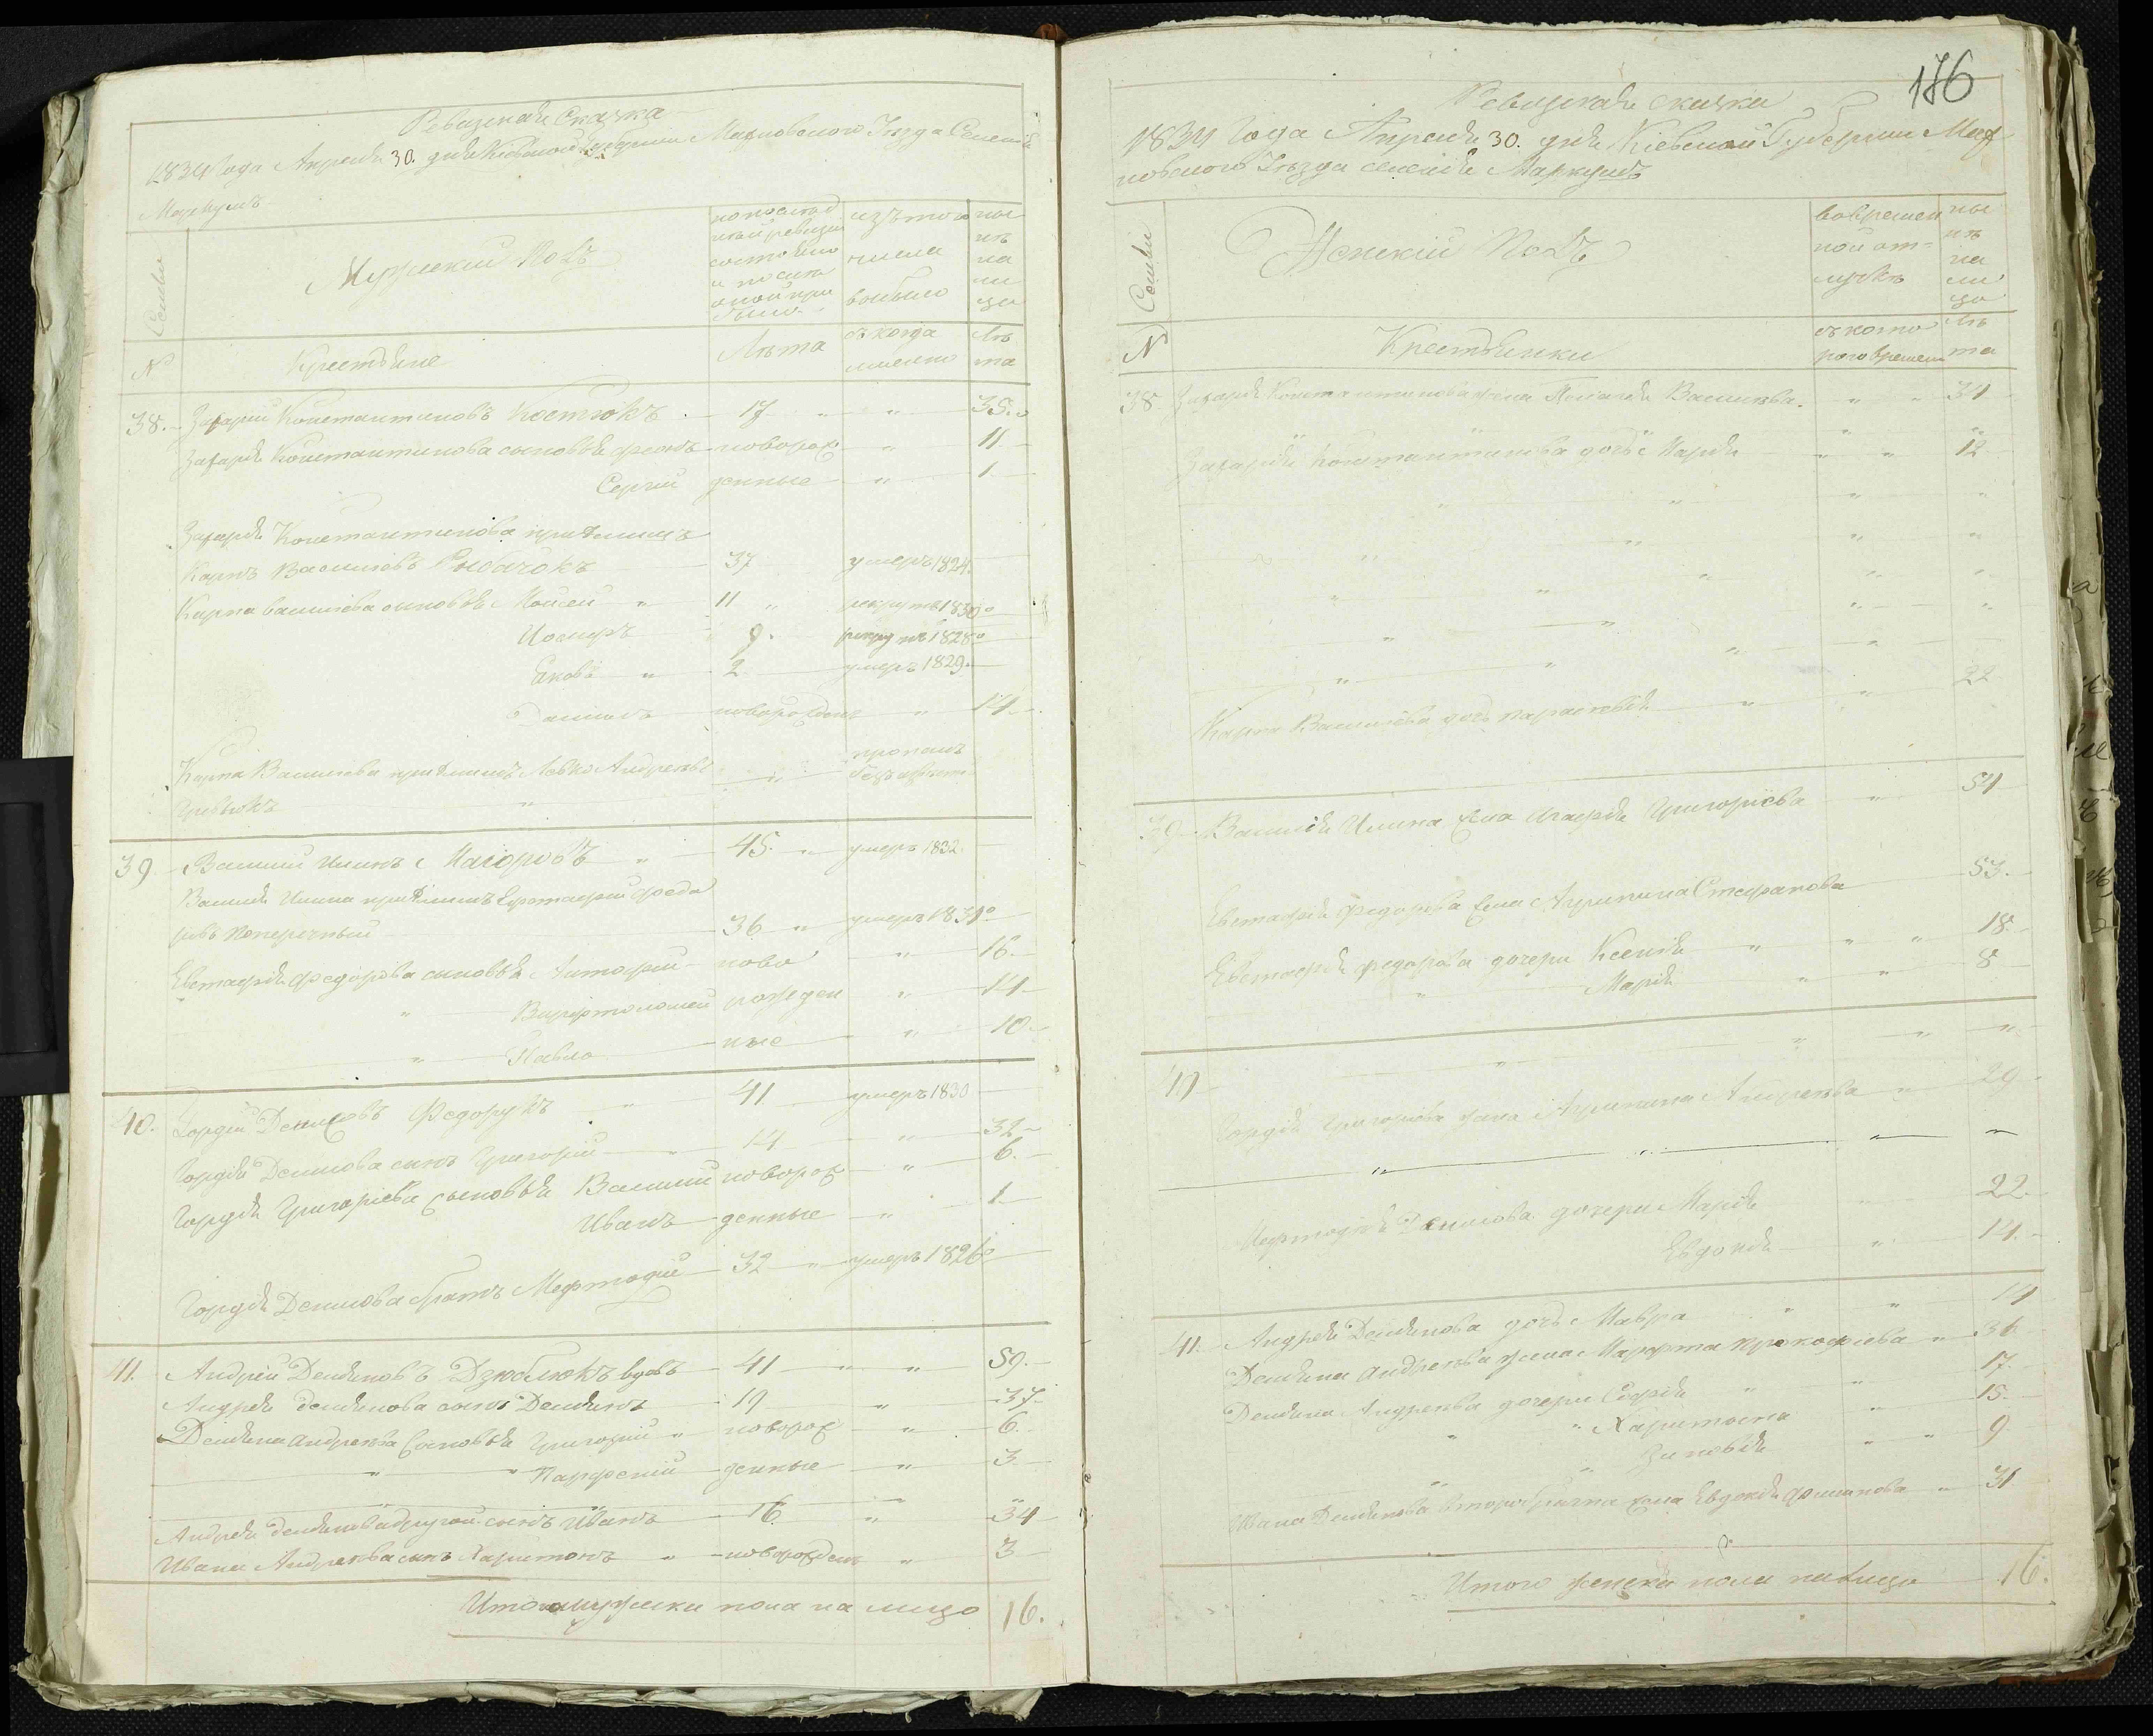 Ревизская Сказка
1834 Года Апреля 30. дня Кіевской Губерніи Махновского Уезда Селенія
Маркушъ
Семьи
Мужеский Полъ
по послед
ней ревизіи
состояло
и после
оной при
было
изъ того
числа
выбыло
ны
нѣ
на
ли
цо
№
Крестьяне
Лѣта
съ когда
именно
Лѣ
та
38. Захарий Константиновъ Костюкъ 17 " " 35.
Захарія Константинова сыновья новорож " 11
Сергий денные " 1
Захарія Константинова приймишъ
Карпъ Василіевъ Рыбачокъ 37 умеръ 1824.
Карпа Василіева сыновья Моисей " 11 " рекрутъ 1830о
Иосифъ 9. рекрутъ 1828о
Яковъ " 2 умеръ 1829.
Данило новорожден " 14
Карпа Василіева приймишъ Левко Андреевъ " пропалъ
безъ
39 Василий Илинъ 45. " умеръ 1832.
Василія Илина приймишъ Евстафий Федо
ровъ Поперечный 36 " умеръ 1831о
Евстафія Федорова сыновья ново " 16.
" Варфтоломей рожден " 14
" Павло ные " 10
40. Гордій Денисовъ Федорукъ " 41 умеръ 1830
Гордія Денисова сынъ Григорій " 14 " 32
Гордія Григоріева сыновья Василий новорож " 6.
Иванъ денные " 1
Гордія Денисова братъ Мефтодий 32 " умеръ 1826о
41. Андрей Демяновъ Дзюблюкъ вдовъ 41 " " 59.
Андрея Демянова сынъ Демянъ 19 " 37
Демяна Андреева Сыновья Григорий " новорож " 6.
" " Парфений денные " 3
Андрея Демянова другой сынъ Иванъ 16 " 34
Ивана Андреева сынъ Харитонъ " новорожден " 3
Итого мужеска пола на лицо 16.
176
Ревизская сказка
1834 Года Апреля 30. дня Кіевской Губерніи Мах
новского Уезда селенія Маркушъ
Семьи
Женский Полъ
во времен
ной от-
лучкѣ
ны
нѣ
на
ли
цо
№
Крестьянки
съ кото
рого времени
Лѣ
та
38 Захарія Константинова жена Васильева. " " 34
Захарія Константинова дочь Марія " " 12
Карпа Василіева дочь Парасковія " " 22
39 Василія Илина жена Агафія Григоріева " 54
Евстафія Федорова жена Агрипина Стефанова 53.
Евстафія Федорова дочери Ксенія " " " 18
" Марія " " 8
40
Гордія Григоріева жена Агрипина Андреева " 29
Мефтодія Денисова дочери Марія 22.
Евдокія " 14.
41. Андрея Демянова дочь Мавра " " 14
Демяна Андреева жена Марфта Прокофіева " 36
Демяна Андреева дочери Софія " " 17
" " Харитина " 15
" " Зиновія " " 9
Ивана Демянова второбрачна жена Евдокія Филипова " 31
Итого женска пола налицо 16.